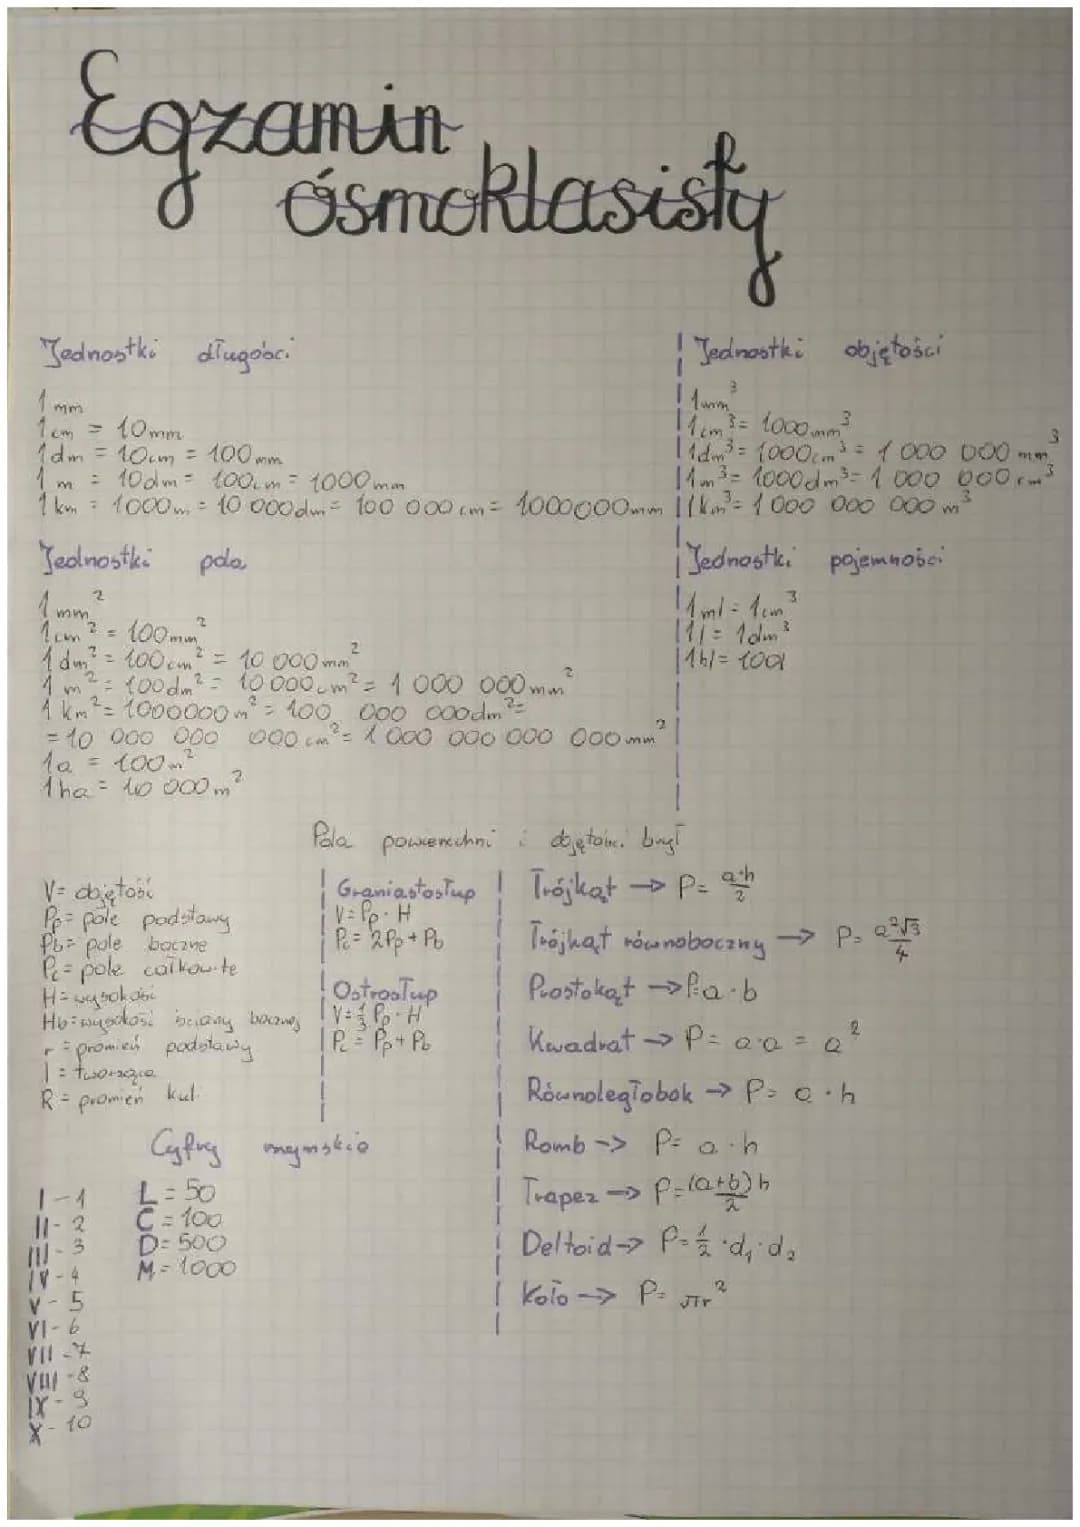 Egzamin
ósmoklasisty
Jednostki długości
1 mm
1cm = 10mm
1dm = 10cm = 100mm
1 m = 10dm = 100cm = 1000mm
1 km = 1000m = 10 000dm = 100 000 cm = 1000000mm
Jednostki objętości
1mm³
1cm³ = 1000mm³
1dm³ = 1000cm³ = 1 000 000 mm³
1m³ = 1000dm³ = 1 000 000 cm³
1km³ = 1 000 000 000 m³
Jednostki pola
1 mm²
1cm² = 100mm²
1 dm² = 100cm² = 10 000mm²
1 m² = 100dm² = 10 000cm² = 1 000 000mm²
1 km² = 1000000m² = 100 000 000dm² =
= 10 000 000 000 cm² = 1 000 000 000 000 mm²
1a = 100m²
1ha = 10 000m²
Jednostki pojemności
1ml = 1cm³
1l = 1dm³
1hl = 100l
Pola powierzchni i objętości brył
V = objętość
Pp = pole podstawy
Pb = pole boczne
Pc = pole całkowite
H = wysokość
Hb = wysokość ściany bocznej
r = promień podstawy
l = tworząca
R = promień kuli
Graniastosłup
V = Pp · H
Pc = 2Pp + Pb
Ostrosłup
V = 1/3 Pp · H
Pc = Pp + Pb
Trójkąt → P = a·h/2
Trójkąt równoboczny → P = a²√3/4
Prostokąt → P = a · b
Kwadrat → P = a·a = a²
Równoległobok → P = a · h
Romb → P = a · h
Trapez → P = (a+b)h/2
Deltoid → P = 1/2 · d₁ · d₂
Koło → P = πr²
Cyfry rzymskie
I - 1
II - 2
III - 3
IV - 4
V - 5
VI - 6
VII - 7
VIII - 8
IX - 9
X - 10
L = 50
C = 100
D = 500
M = 1000